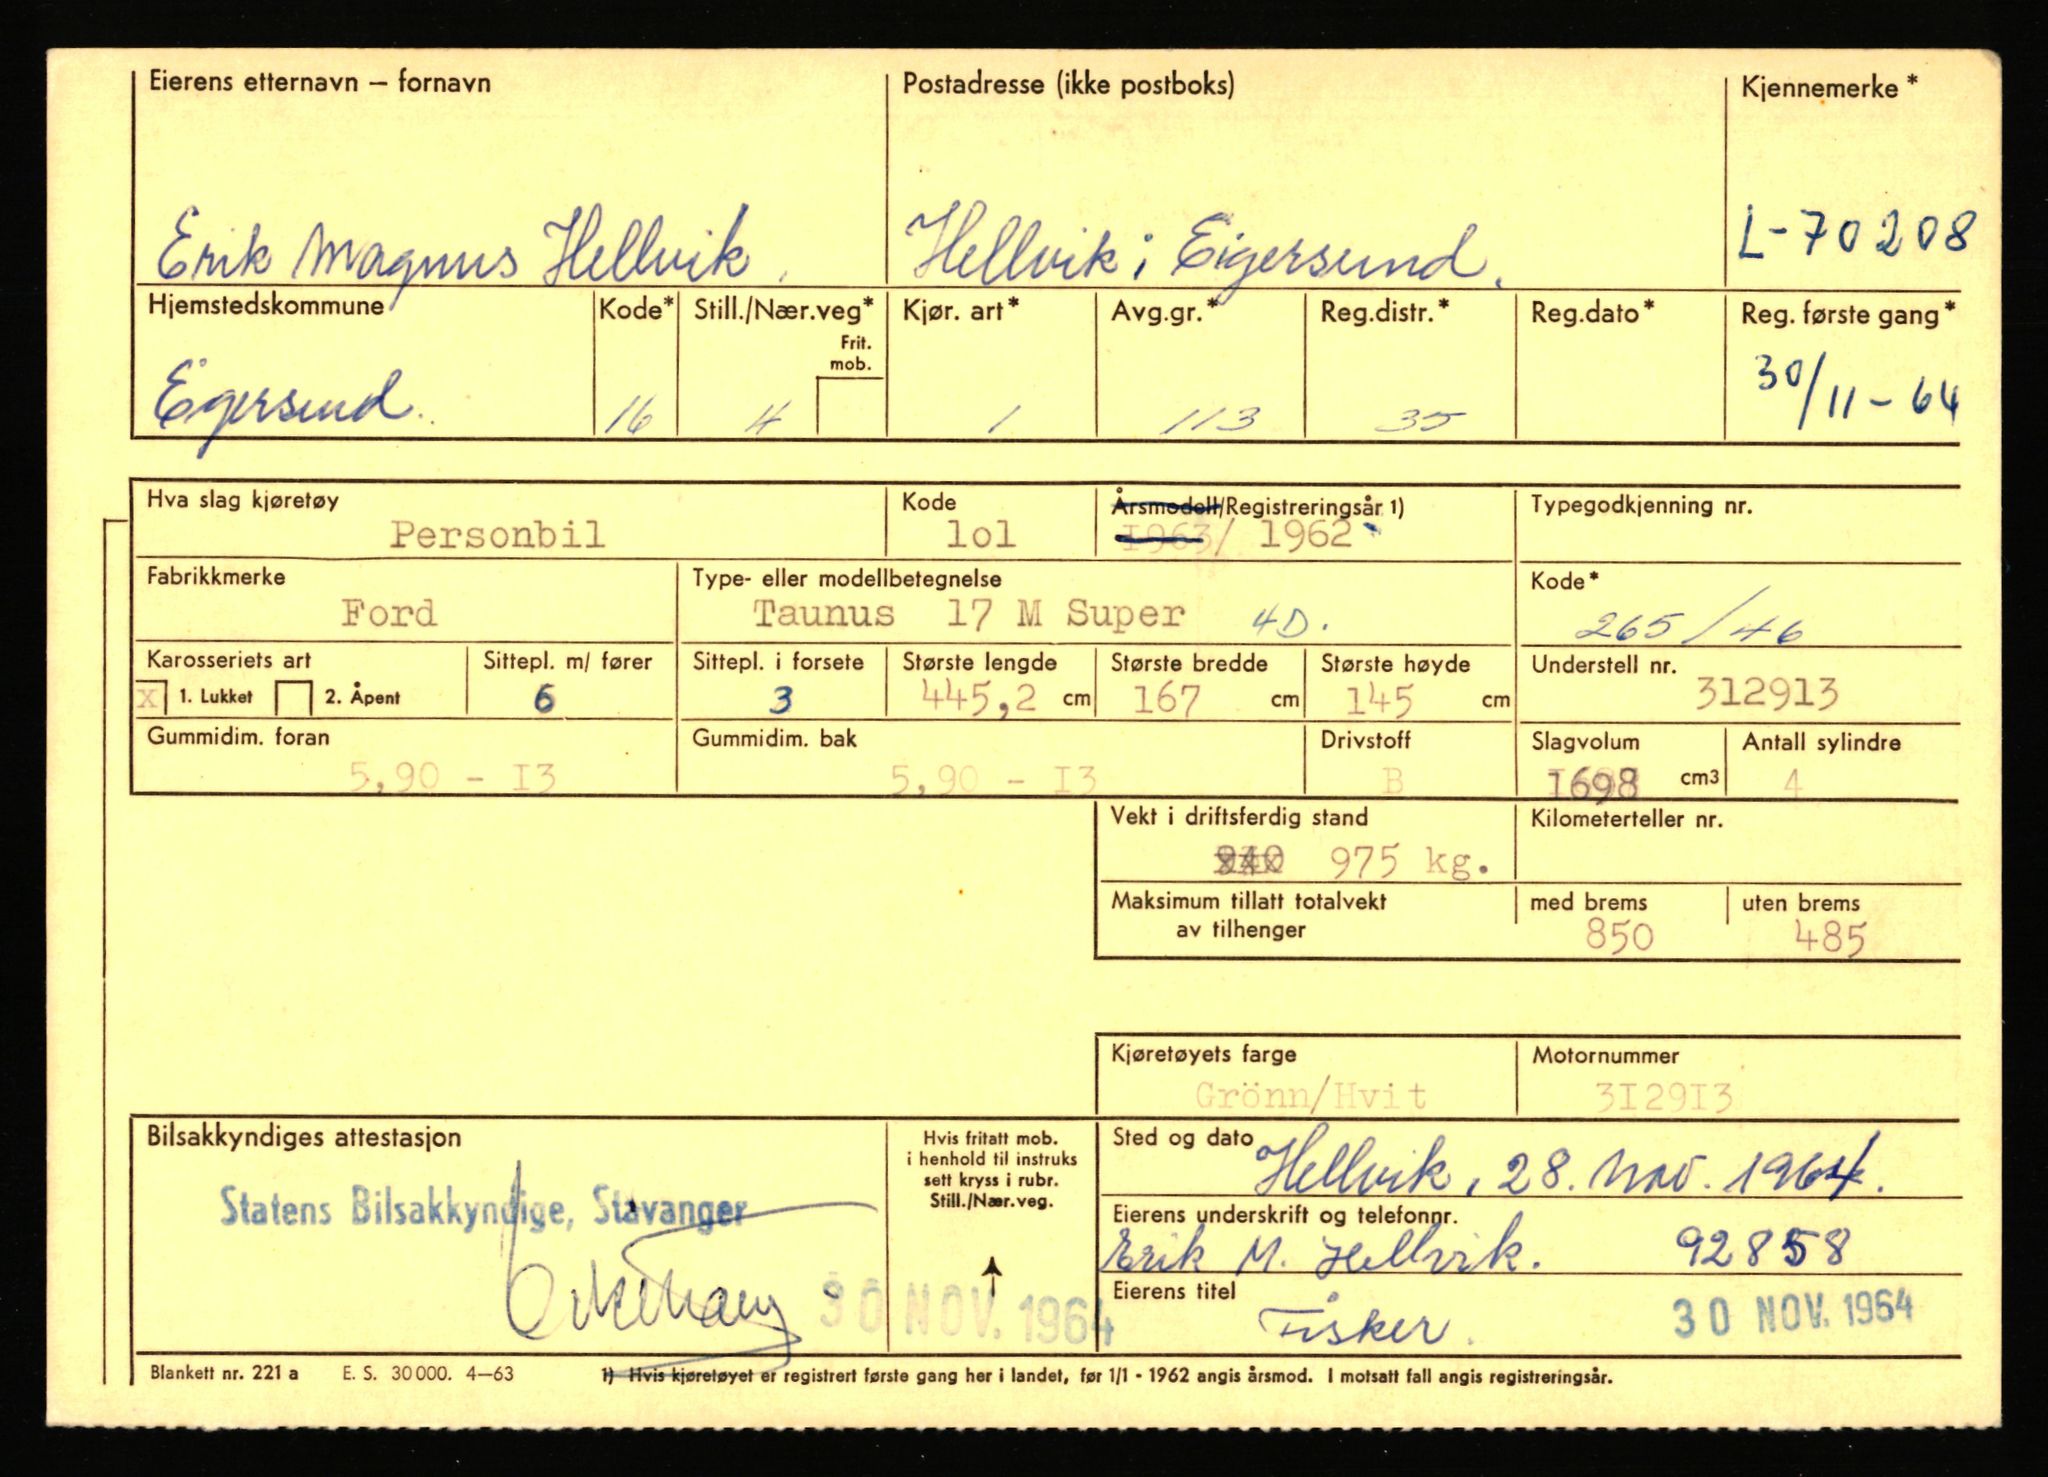 Eierens etternavn – fornavn
Postadresse (ikke postboks)
Kjennemerke *
Erik Magnus Hellvik.
Hellvik i Eigersund.
L-70208
Hjemstedskommune
Kode*
Still./Nær.veg*
Frit. mob.
Kjør. art*
Avg.gr.*
Reg.distr.*
Reg.dato*
Reg. første gang*
Egersund.
16
4
1
113
35
30/11-64
Hva slag kjøretøy
Kode
Årsmodell/Registreringsår 1)
Typegodkjenning nr.
Personbil
lol
1963/ 1962
Fabrikkmerke
Type- eller modellbetegnelse
Kode*
Ford
Taunus 17 M Super 4D.
265/46
Karosseriets art
Sittepl. m/ fører
Sittepl. i forsete
Største lengde
Største bredde
Største høyde
Understell nr.
X 1. Lukket 2. Åpent
6
3
445,2 cm
167 cm
145 cm
312913
Gummidim. foran
Gummidim. bak
Drivstoff
Slagvolum
Antall sylindre
5,90 - I3
5,90 - I3
B
1698 cm3
4
Vekt i driftsferdig stand
Kilometerteller nr.
940 975 kg.
Maksimum tillatt totalvekt
av tilhenger
med brems
uten brems
850
485
Kjøretøyets farge
Motornummer
Grönn/Hvit
3I29I3
Bilsakkyndiges attestasjon
Hvis fritatt mob.
i henhold til instruks
sett kryss i rubr.
Still./Nær.veg.
Sted og dato
Hellvik, 28. Nov. 1964.
Statens Bilsakkyndige, Stavanger
Eierens underskrift og telefonnr.
Erik M. Hellvik. 92858
30 NOV. 1964
Eierens titel
Fisker.
30 NOV. 1964
Blankett nr. 221 a E. S. 30000. 4–63
1) Hvis kjøretøyet er registrert første gang her i landet, før 1/1 - 1962 angis årsmod. I motsatt fall angis registreringsår.